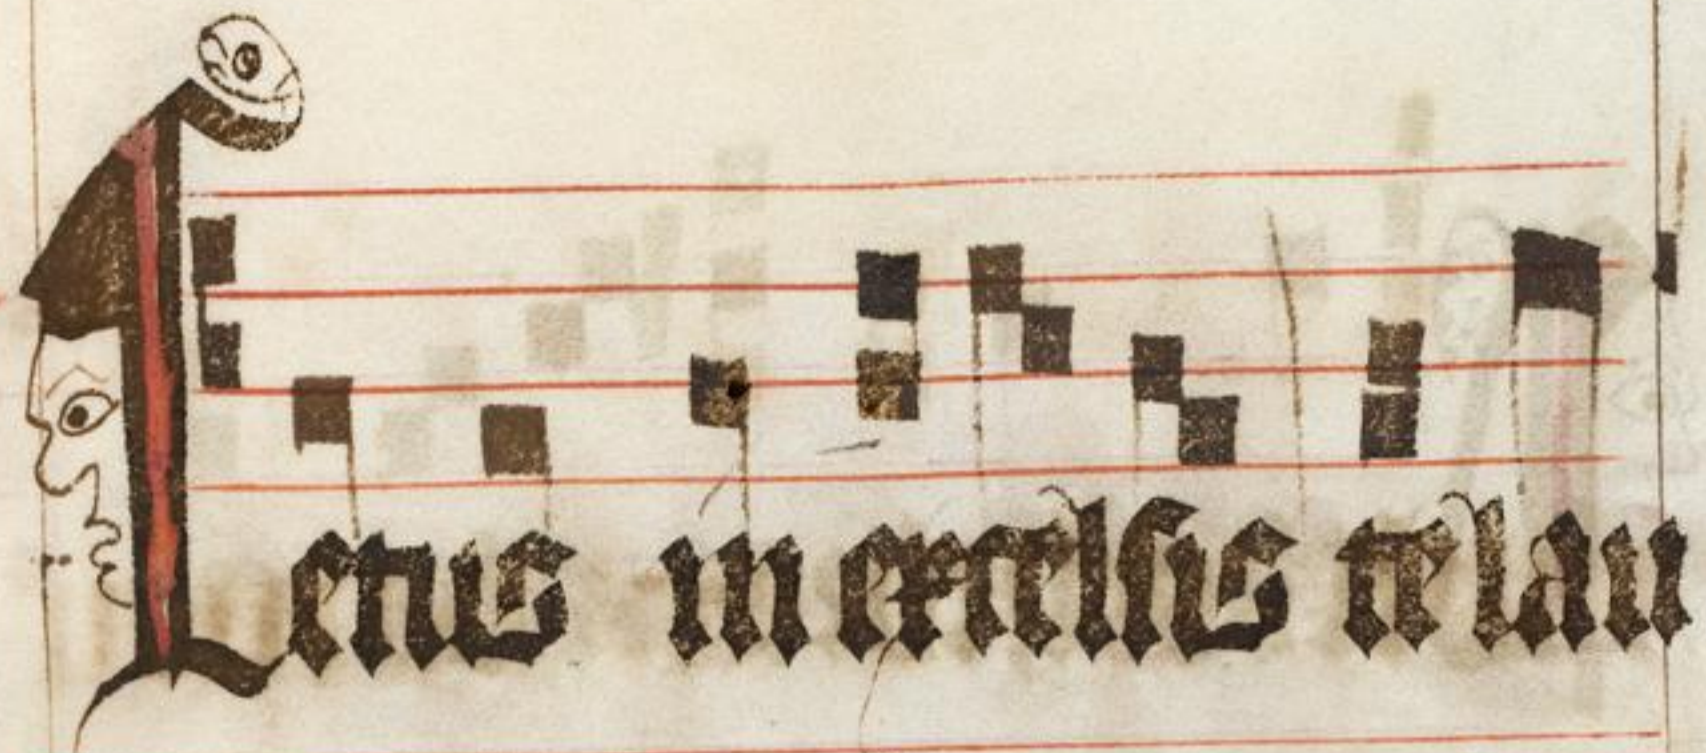 Letus in excelsis te lau